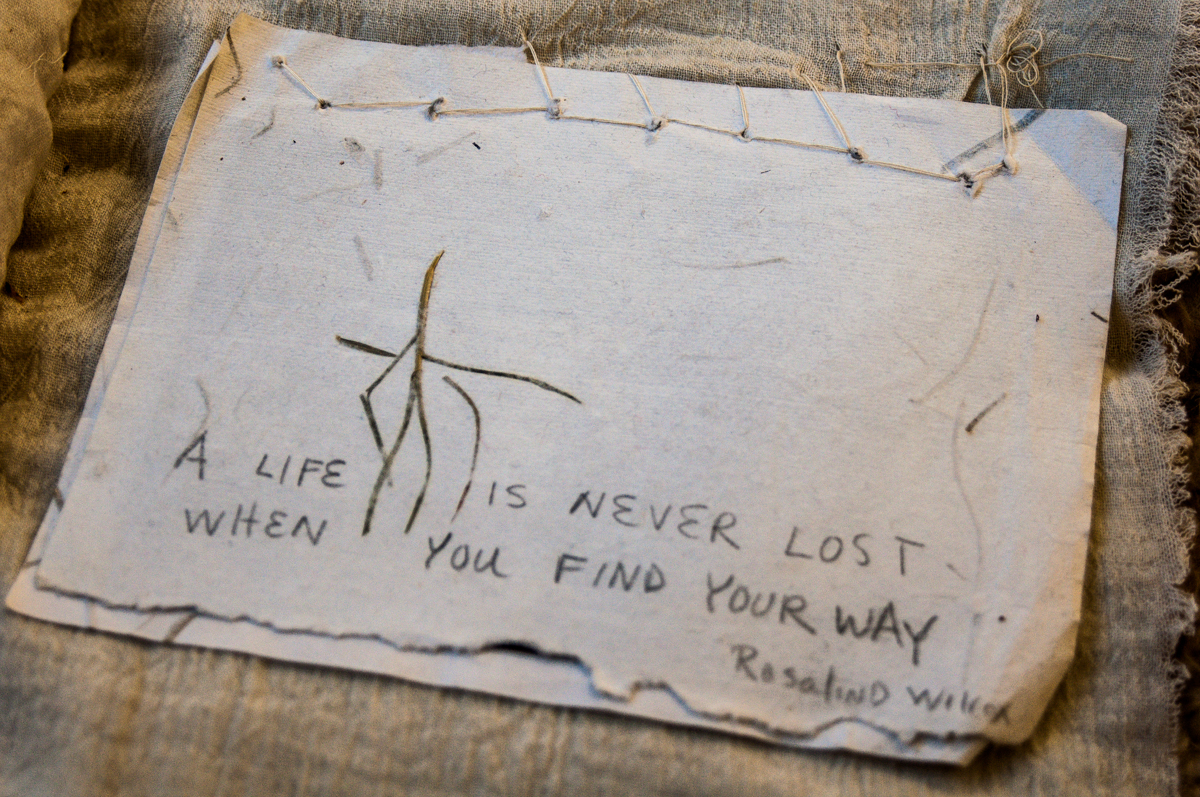 A LIFE IS NEVER LOST
WHEN YOU FIND YOUR WAY
Rosalind Wilcox